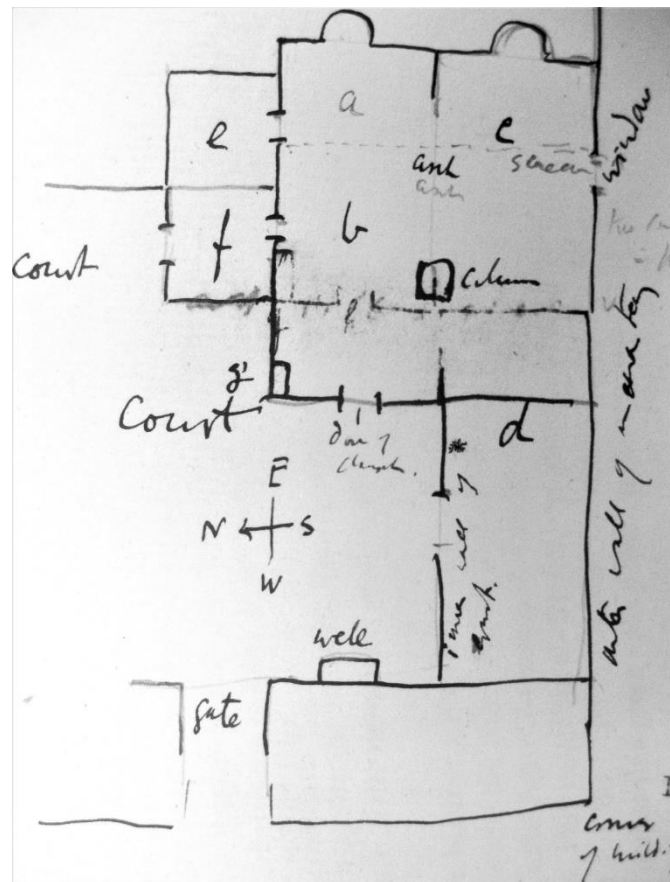 a
e
c
arch
arch
screen
window
b
f
Court
column
g
Court
d
door of
church.
*
E
N S
W
inner wall of
court.
outer wall of monastery
well
gate
corner
of build.